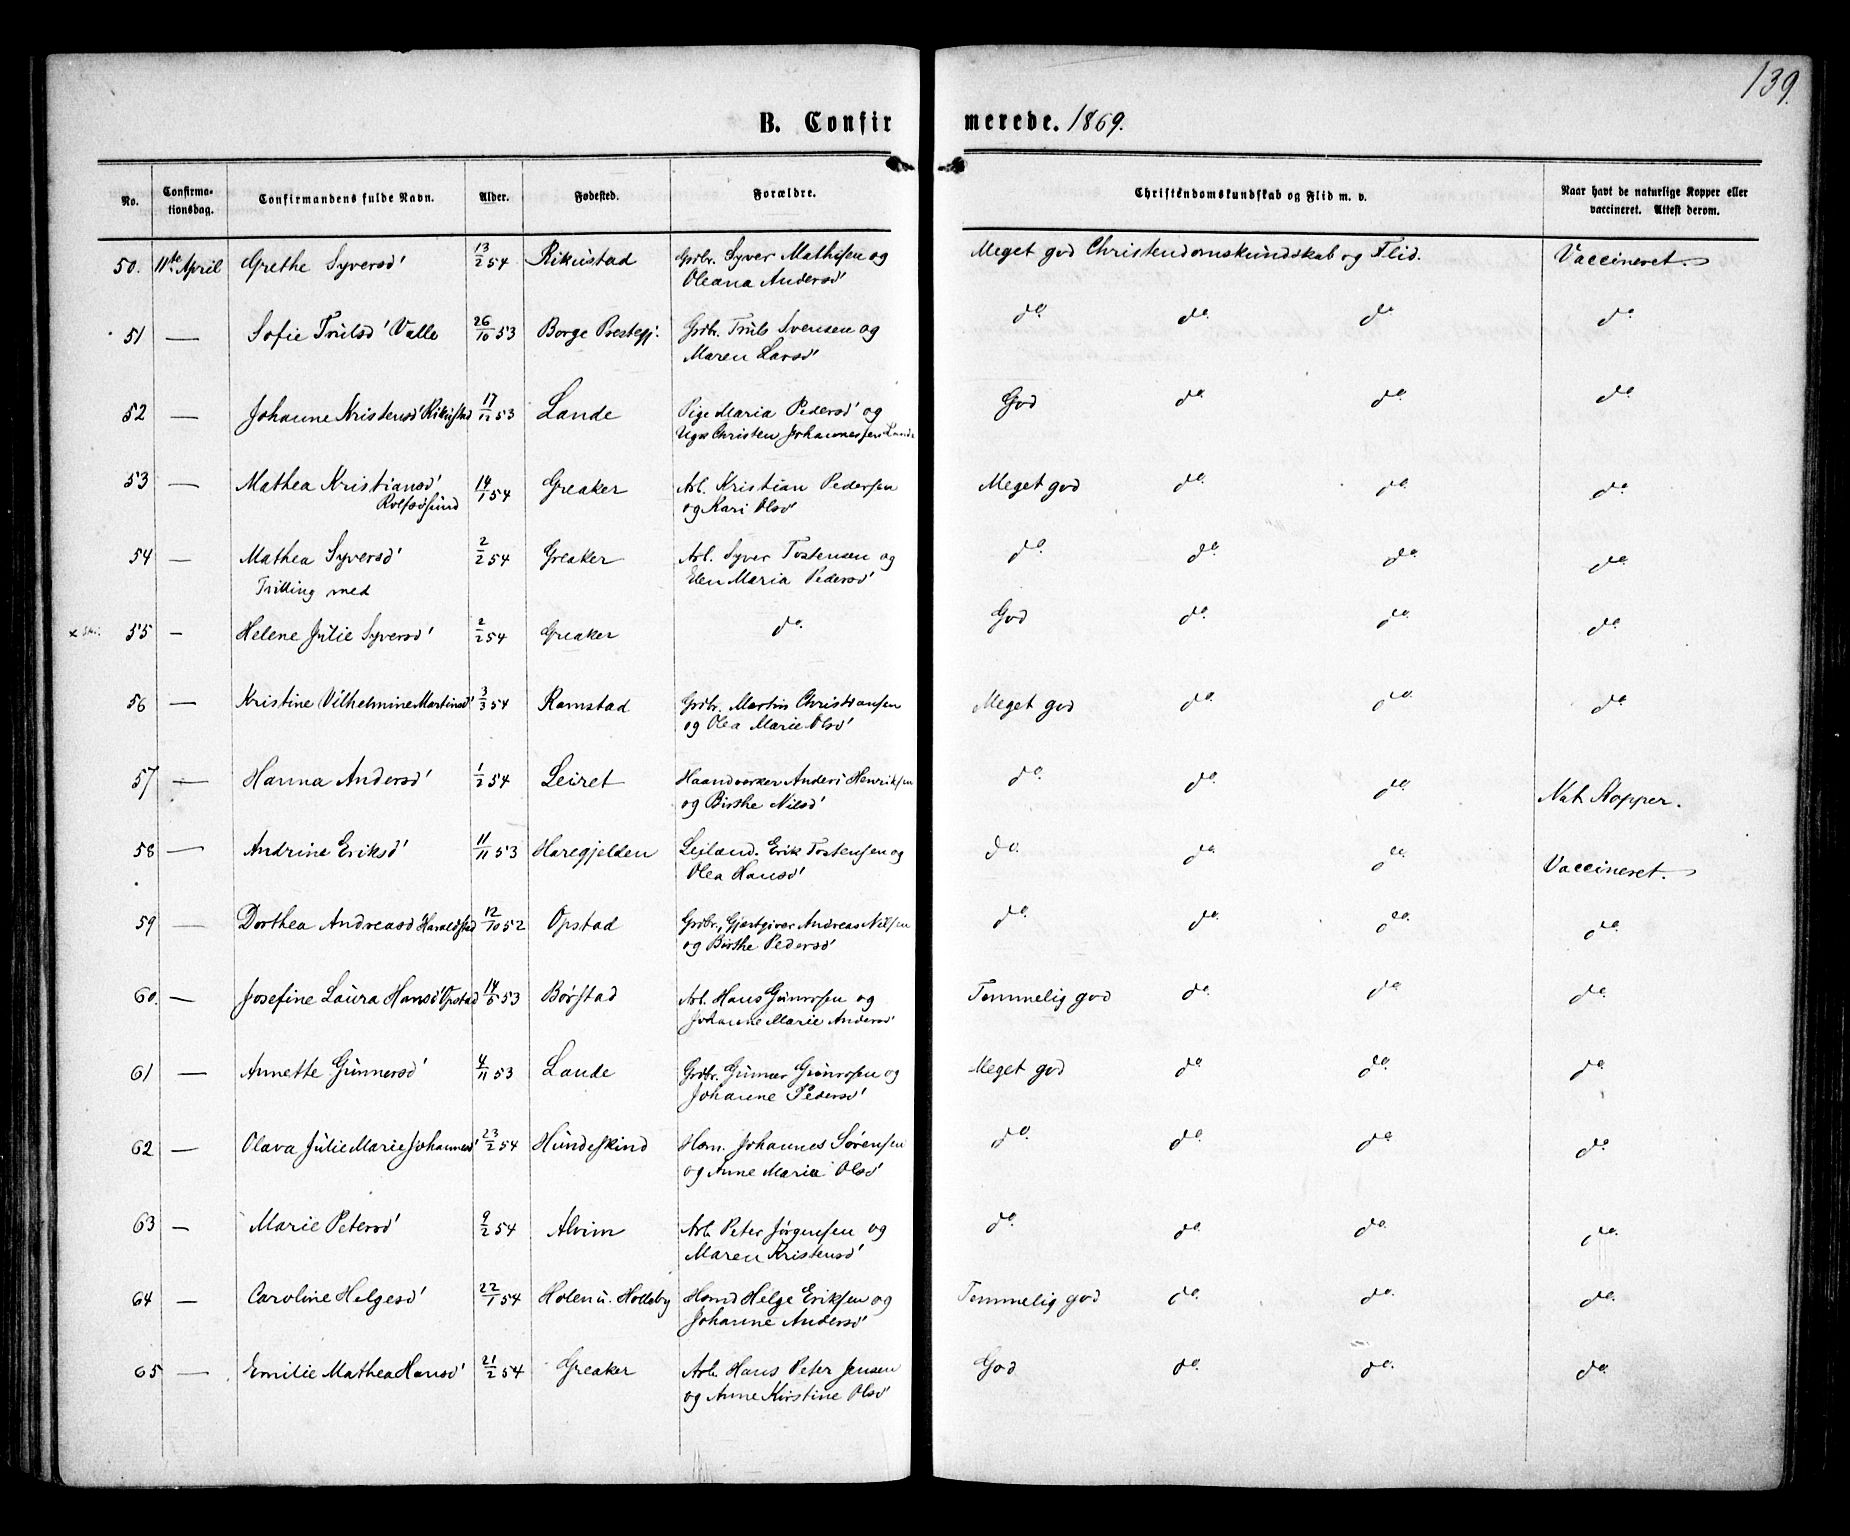 139.
B. Confirmerede. 1869.
No. Confirmationsdag. Confirmandens fulde Navn. Alder. Fødested. Forældre. Christendomskundskab og Flid m. v. Naar havt de naturlige Kopper eller vaccineret. Attest derom.
50. 11te April Grethe Syversd' 13/2 54 Rikustad Grdbr. Syver Mathisen og Meget god Christendomskundskab og Flid. Vaccineret.
Oleana Andersd'
51 — Sofie Trulsd' Valle 26/10 53 Borge Prestegj. Grdbr. Truls Svensen og do. do. do. do.
Maren Larsd'
52 — Johanne Kristensd' Rikustad 17/11 53 Lande Pige Maria Pedersd' og God do. do. do.
Ugk Christen Johannessen Lande
53 — Mathea Kristiansd' 14/1 54 Greaker Arb. Kristian Pedersen Meget god do. do. do.
Rolfsøsund og Kari Olsd'
54 — Mathea Syversd' 2/2 54 Greaker Arb. Syver Tostensen og do. do. do. do.
Trilling med Elen Maria Pedersd'
55 — Helene Julie Syversd' 2/2 54 Greaker do. God do. do. do.
56 — Kristine Vilhelmine Martinsd' 3/3 54 Ramstad Grdbr. Martin Christiansen Meget god do. do. do.
og Olea Marie Olsd'
57 — Hanna Andersd' 1/2 54 Leiret Haandværker Anders Henriksen do. do. do. Nat. Kopper.
og Birthe Nilsd'
58 — Andrine Eriksd' 11/11 53 Haregjelden Leiland. Erik Tostensen og do. do. do. Vaccineret.
Olea Hansd'
59 — Dorthea Andreasd' Haraldstad 12/10 52 Opstad Grdbr., Gjæstgiver Andreas Nilsen do. do. do. do.
og Birthe Pedersd'
60. — Josefine Laura Hansd' Opstad 14/6 53 Børstad Arb. Hans Gunersen og Temmelig god do. do. do.
Johanne Marie Andersd'
61 — Annette Gunnersd' 4/11 53 Lande Grdbr. Gunner Gunersen og Meget god do. do. do.
Johanne Pedersd'
62 — Olava Julie Marie Johannesd' 23/2 54 Hundeskind Hsm. Johannes Sørensen do. do. do. do.
og Anne Maria Olsd'
63 — Marie Petersd' 9/2 54 Alvim Arb. Peter Jørgensen og do. do. do. do.
Maren Kristensd'
64 — Caroline Helgesd' 22/1 54 Holen u. Holleby Hsmd Helge Eriksen og Temmelig god do. do. do.
Johanne Andersd'
65 — Emilie Mathea Hansd' 21/2 54 Greaker Arb. Hans Peter Jensen God do. do. do.
og Anne Kirstine Olsd'